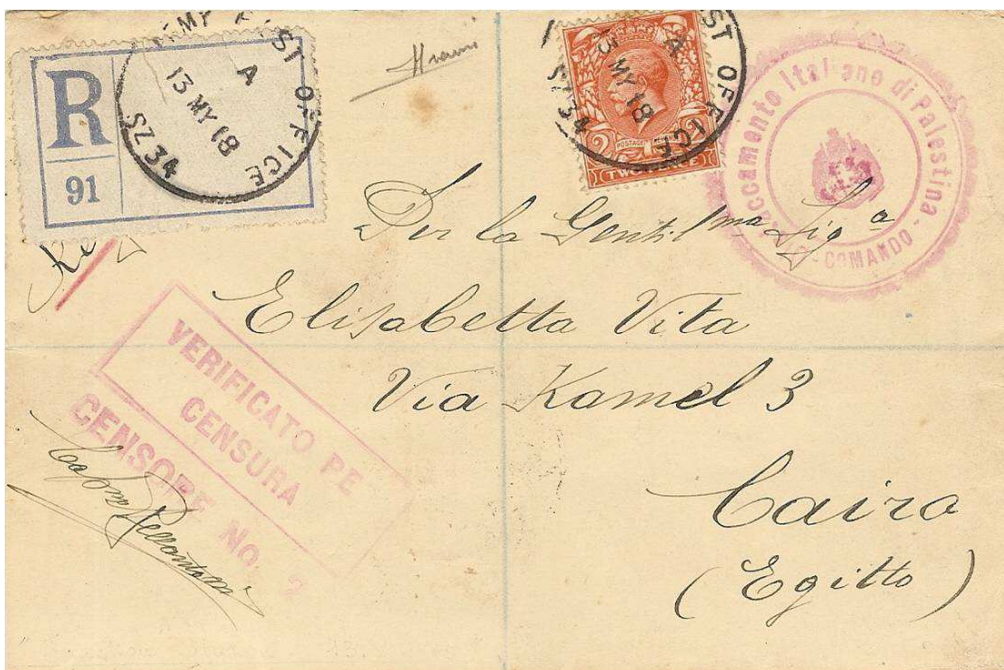 R
91
ARMY POST OFFICE
A
13 MY 18
SZ 34
POST OFFICE
A
MY 18
SZ 34
POSTAGE
TWO PENCE
Distaccamento Italiano di Palestina
- COMANDO -
Per la Gentil ma Sig a
Elisabetta Vita
Via Kamel 3
Cairo
(Egitto)
VERIFICATO PE
CENSURA
CENSORE NO.